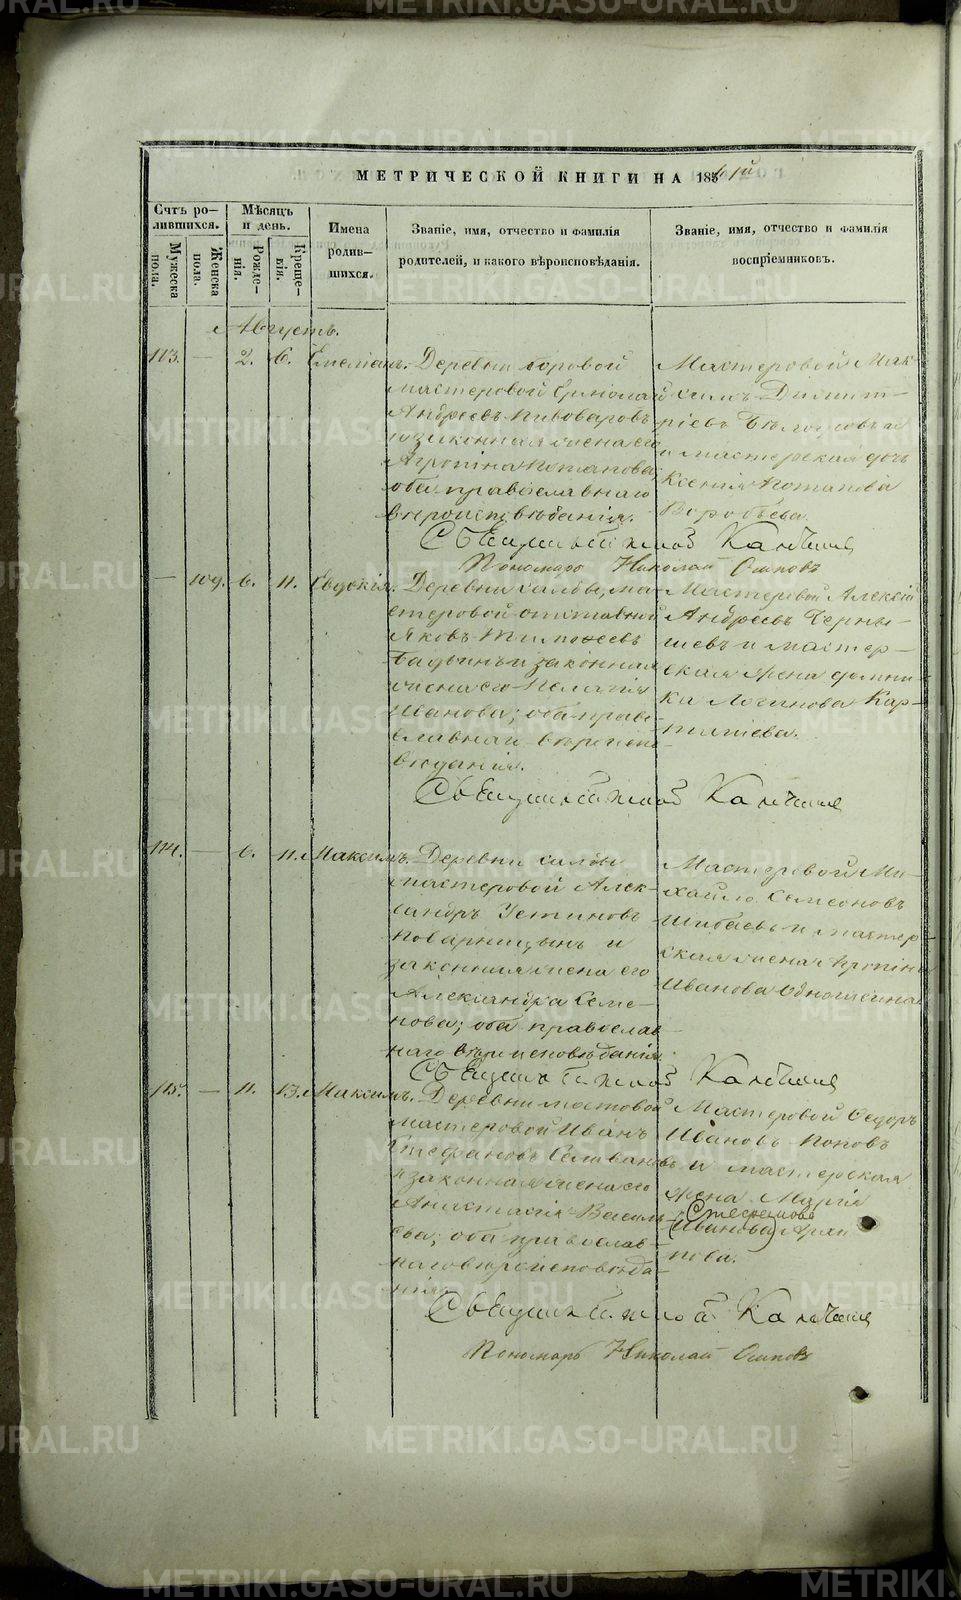 METRIKI.GASO-URAL.RU
МЕТРИЧЕСКОЙ КНИГИ НА 1861й
Счтъ ро-
лившихся.
Мужеска
пола.
Женска
пола.
Мѣсяцъ
и день.
Рожде-
нія.
Креще-
нія.
Имена
родив-
шихся.
Званіе, имя, отчество и фамилія
родителей, и какого вѣроисповѣданія.
Званіе, имя, отчество и фамилія
воспріемниковъ.
Августъ.
113. — 2. 6. Емеліанъ.
Деревни боровой
мастеровой Ермолай
Андреевъ Пивоваровъ
и законная жена его
Агропіна Потапова,
оба православнаго
вѣроисповѣданія.
Мастеровой Мак-
симъ Димит-
ріевъ
и мастерская дочь
Ксенія Потапова
Воробьева.
Пономарь Николай Осиповъ
— 109. 6. 11. Евдокія.
Деревни салбы, ма-
стеровой отставный
Яковъ Тимофеевъ
и законная
жена его Пелагія
Иванова; оба право-
славнаго вѣроиспо-
вѣданія.
Мастеровой Алексій
Андреевъ Черны-
шевъ и мастер-
ская жена домни-
ка Логинова Кар-
114. — 6. 11. Максимъ.
Деревни салбы
мастеровой Алек-
сандръ Устиновъ
Поварницынъ и
законная жена его
Александра Семе-
нова; оба православ-
наго вѣроисповѣданія.
Мастеровой Ми-
хайло Семеоновъ
Шибаевъ и мастер-
ская жена Агропіна
Иванова
115. — 11. 13. Максимъ.
Деревни мостовой
мастеровой Иванъ
Стефановъ Селивановъ
и законная жена его
Анастасія Василь-
ева; оба православ-
наго вѣроисповѣда-
нія.
Мастеровой Ѳедоръ
Ивановъ Поповъ
и мастерская
жена Марія
(Иванова)
Пономарь Николай Осиповъ